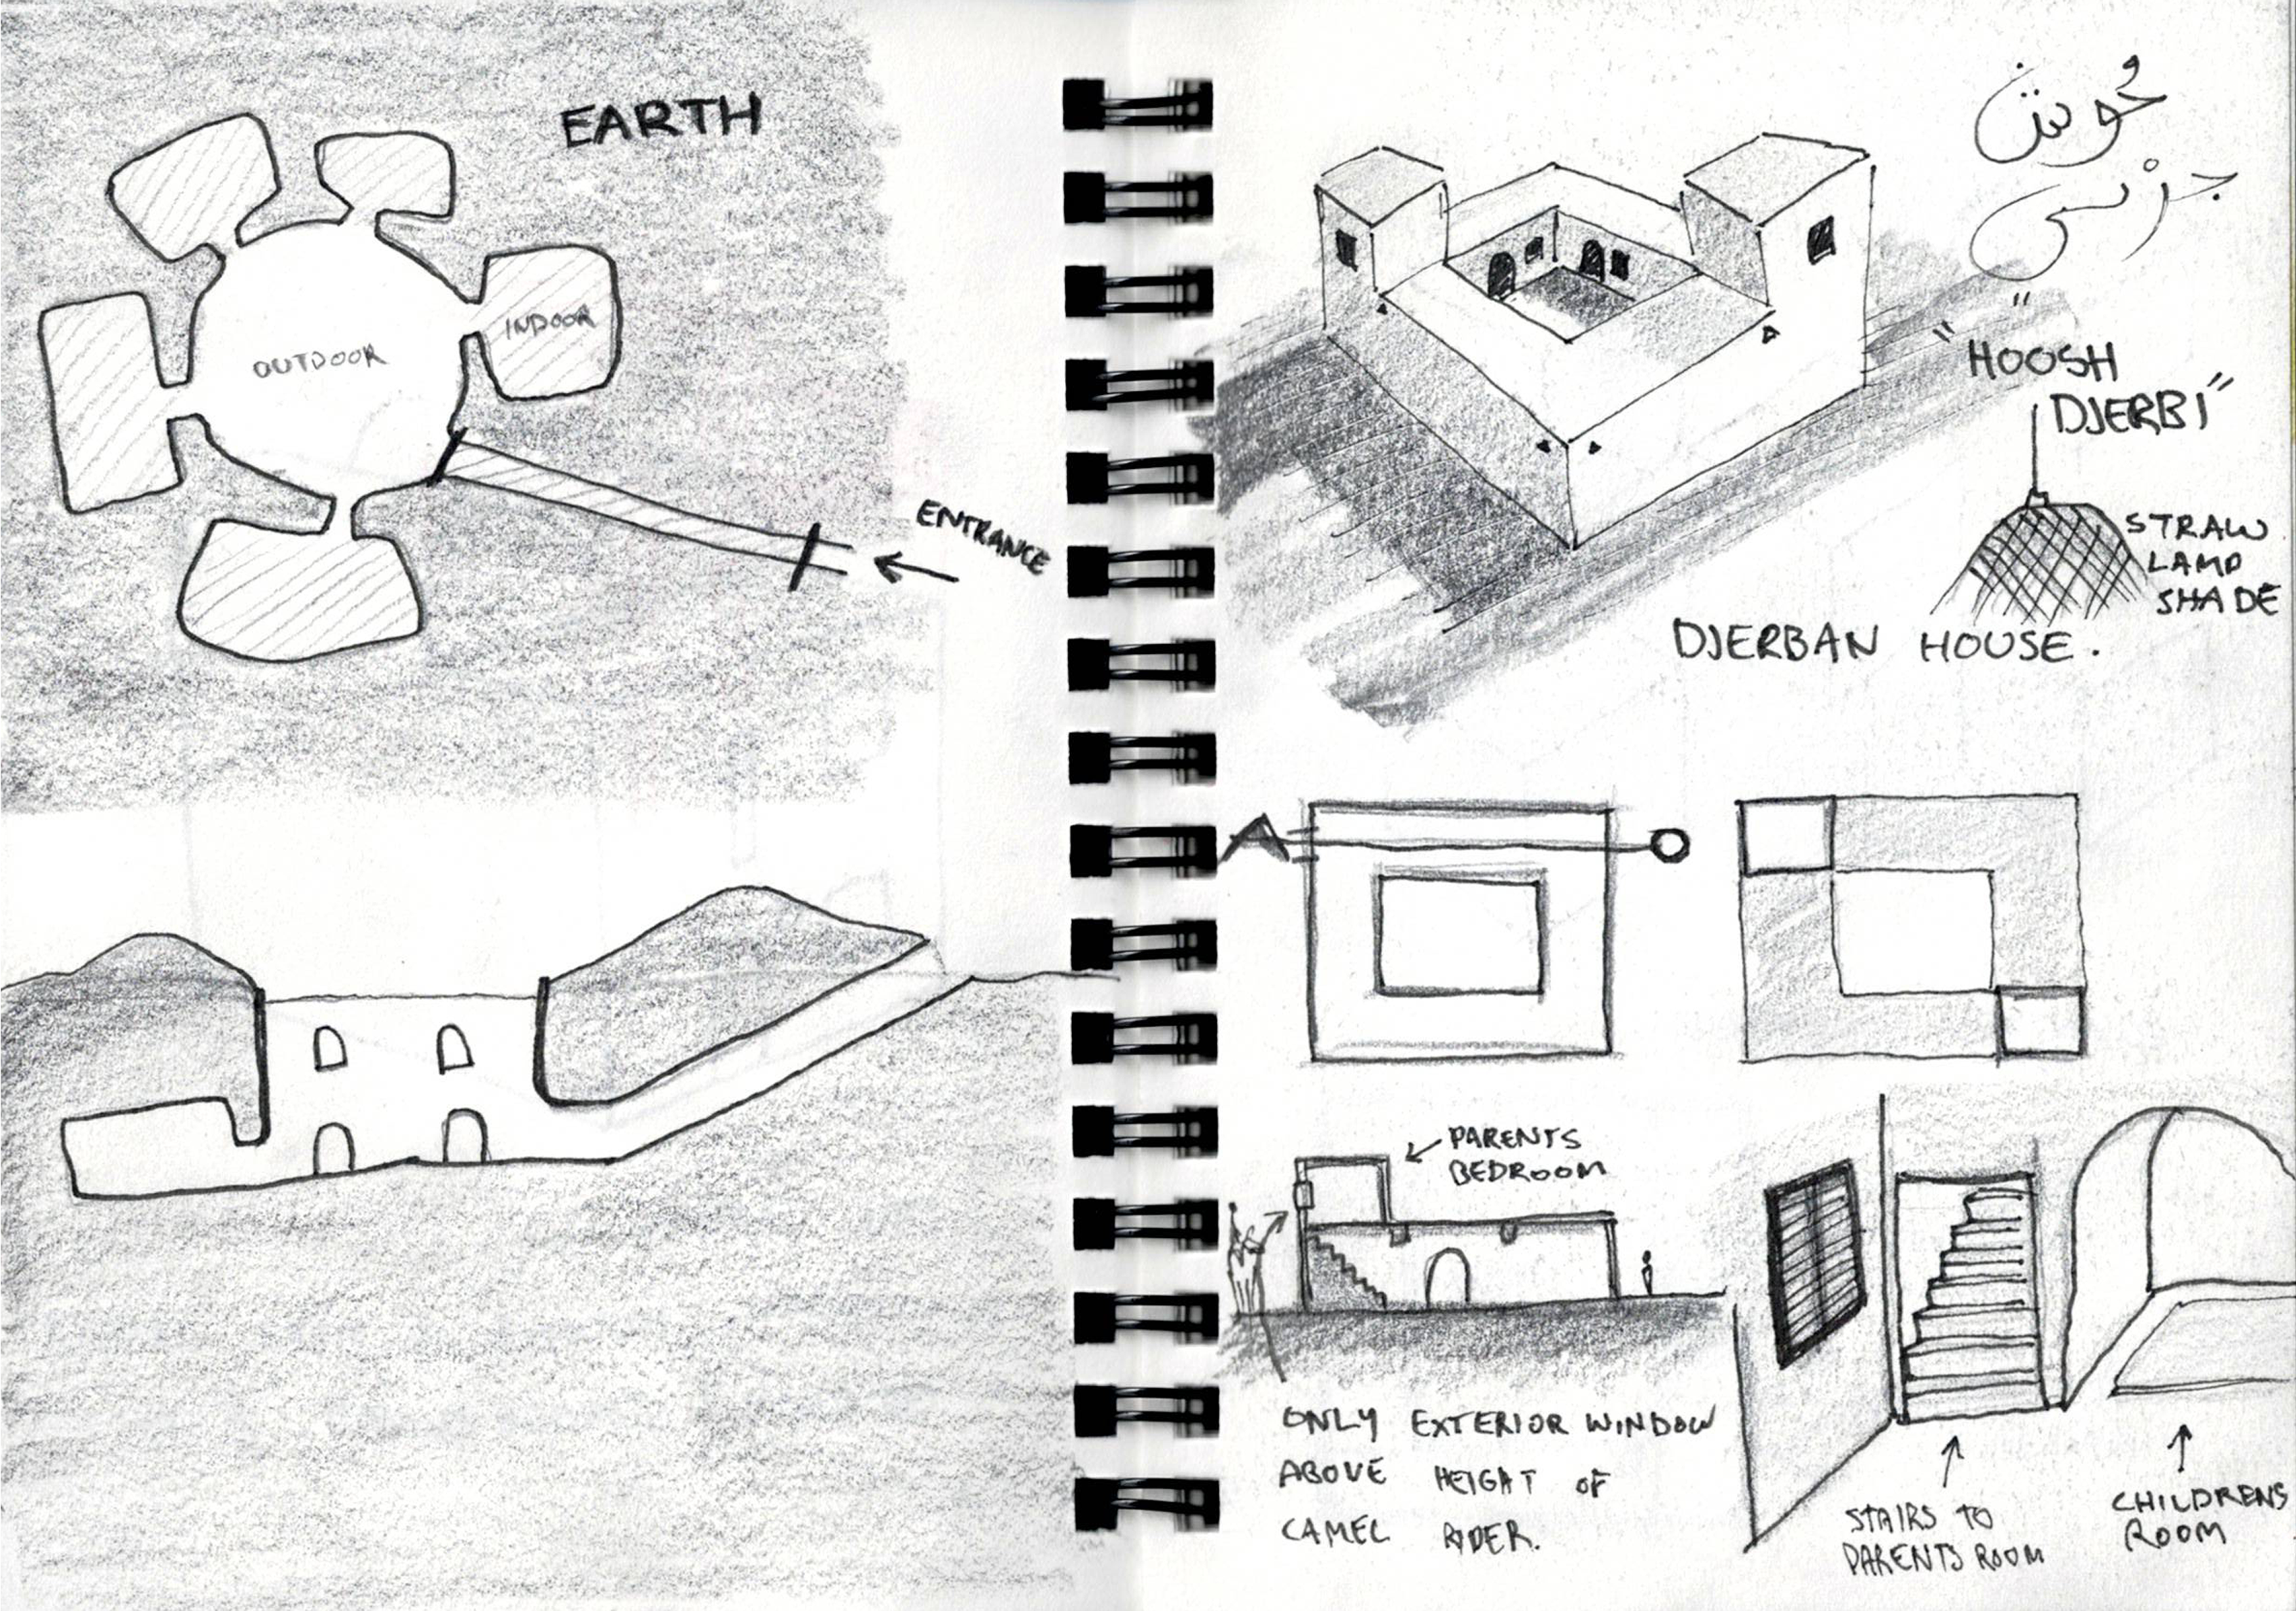 EARTH
OUTDOOR
INDOOR
ENTRANCE
حوش
جربي
"HOOSH
DJERBI"
STRAW
LAMP
SHADE
DJERBAN HOUSE.
PARENTS
BEDROOM
ONLY EXTERIOR WINDOW
ABOVE HEIGHT OF
CAMEL RIDER.
STAIRS TO
PARENTS ROOM
CHILDRENS
ROOM